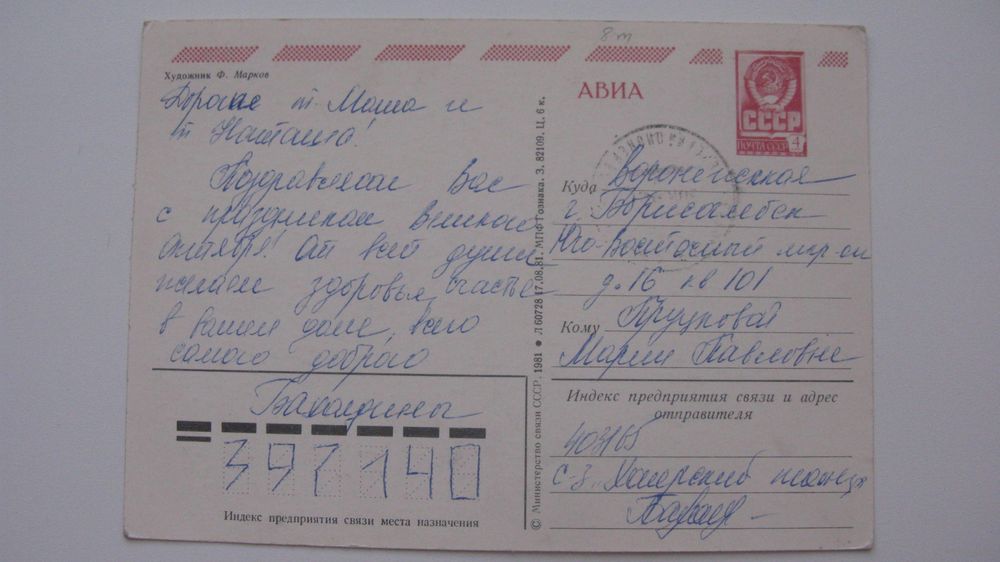 8 т
Художник Ф. Марков
АВИА
СССР
ПОЧТА СССР 4
Дорогие т. Маша и
т Наташа!
Поздравляем Вас
с праздником Великого
Октября! От всей души
желаем здоровья, счастье
в вашем доме, всего
самого доброго
397140
Индекс предприятия связи места назначения
© Министерство связи СССР, 1981 • Л 60728 17.08.81. МПФ Гознака. З. 82109. Ц. 6 к.
Куда Воронежская
г. Борисоглебск
Юго-Восточный мкр-он
д. 16 кв 101
Кому
Марии Павловне
Индекс предприятия связи и адрес
отправителя
403165
с-з „Хоперский